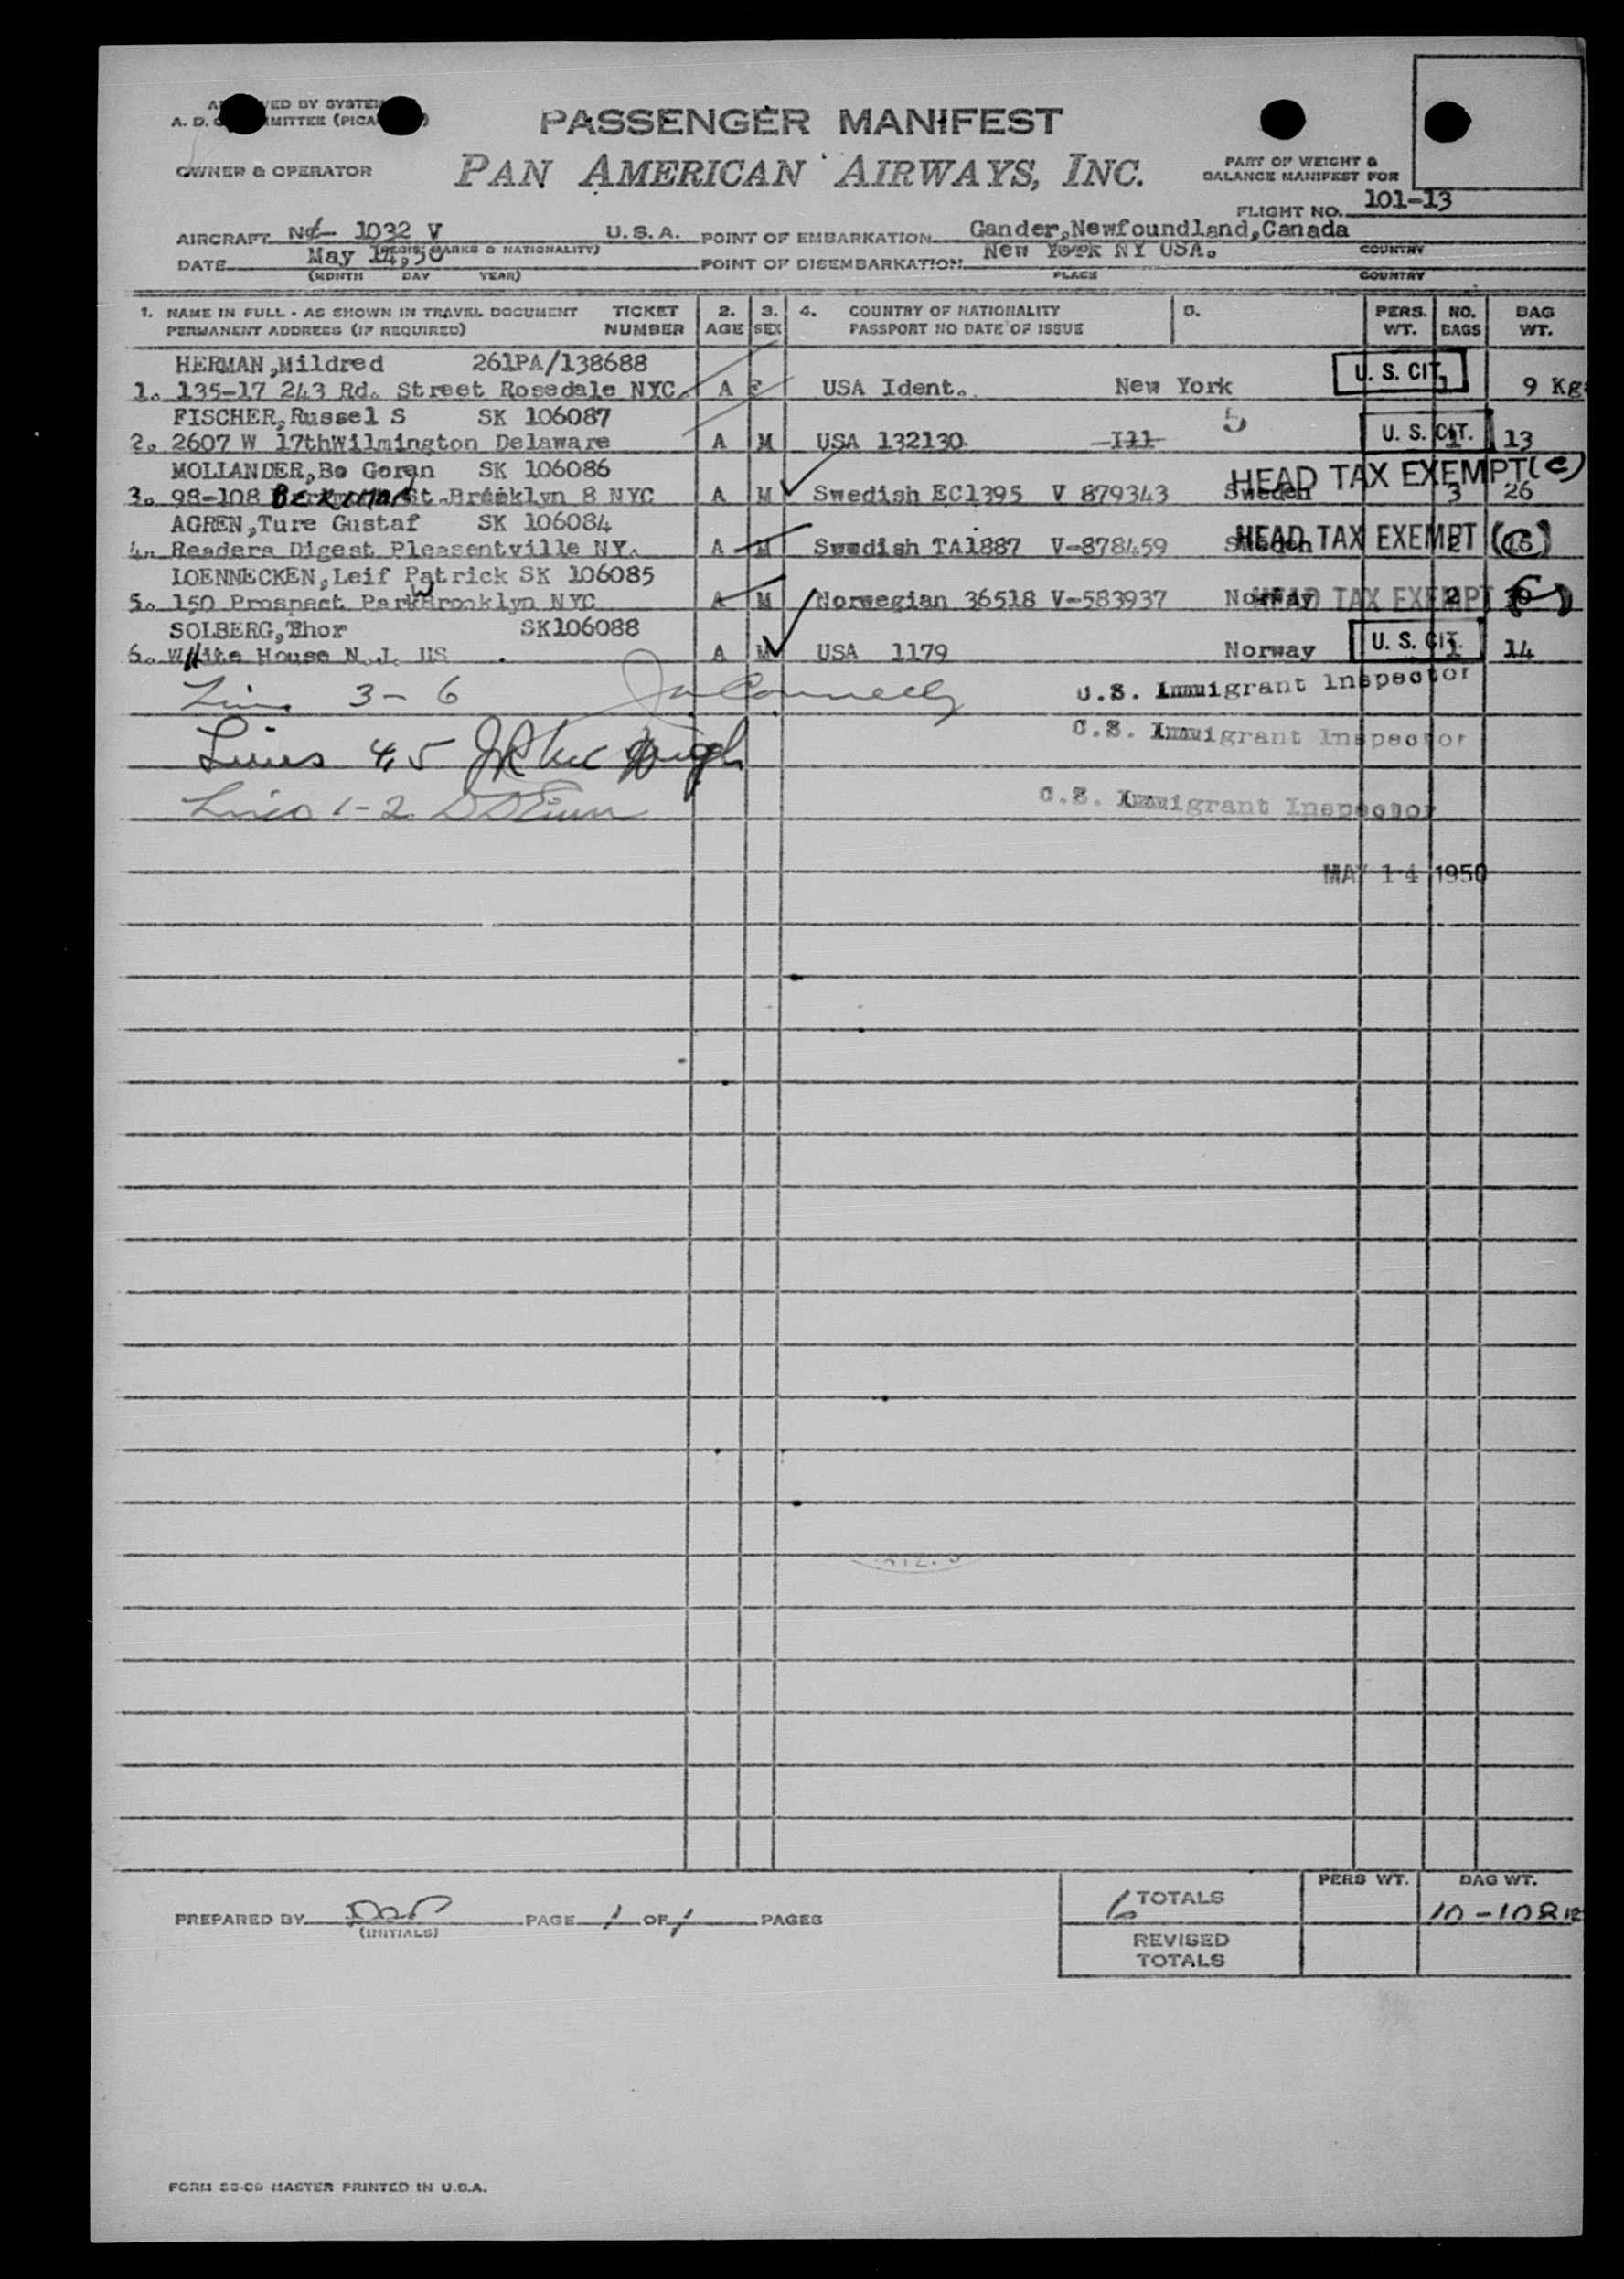 OWNER & OPERATOR
PASSENGER MANIFEST
PAN AMERICAN AIRWAYS, INC.
PART OF WEIGHT &
BALANCE MANIFEST FOR
FLIGHT NO. 101-13
AIRCRAFT 1032 V U.S.A. POINT OF EMBARKATION Gander,Newfoundland,Canada
DATE May 14,50 POINT OF DISEMBARKATION New York NY USA.
(MONTH DAY YEAR) PLACE COUNTRY
1. NAME IN FULL - AS SHOWN IN TRAVEL DOCUMENT TICKET 2. 3. 4. COUNTRY OF NATIONALITY PERS. NO. BAG
PERMANENT ADDRESS (IF REQUIRED) NUMBER AGE SEX PASSPORT NO DATE OF ISSUE WT. BAGS WT.
HERMAN,Mildred 261PA/138688
1. 135-17 243 Rd. Street Rosedale NYC. A F USA Ident. New York U. S. CIT. 1 9 Kgs
FISCHER,Russel S SK 106087
2. 2607 W 17thWilmington Delaware A M USA 132130 Ill 5 U. S. CIT. 1 13
MOLLANDER,Bo Goran SK 106086
3. 98-108 BEEKMAN St.Brooklyn 8 NYC A M Swedish EC1395 V 879343 Sweden HEAD TAX EXEMPT (C) 3 26
AGREN,Ture Gustaf SK 106084
4. Readers Digest Pleasentville NY. A M Swedish TA1887 V-878459 Sweden HEAD TAX EXEMPT (C) 2
LOENNECKEN,Leif Patrick SK 106085
5. 150 Prospect Park W Brooklyn NYC A M Norwegian 36518 V-583937 Norway HEAD TAX EXEMPT (C) 2
SOLBERG,Thor SK106088
6. White House N.J. US . A M USA 1179 Norway U. S. CIT. 1 14
Line 3-6 U.S. Immigrant Inspector
Lines 4,5 U.S. Immigrant Inspector
Lines 1-2 U.S. Immigrant Inspector
MAY 14 1950
PERS WT. BAG WT.
6 TOTALS
PREPARED BY PAGE 1 OF 1 PAGES
(INITIALS)
REVISED
TOTALS
FORM SG-C9 MASTER PRINTED IN U.S.A.